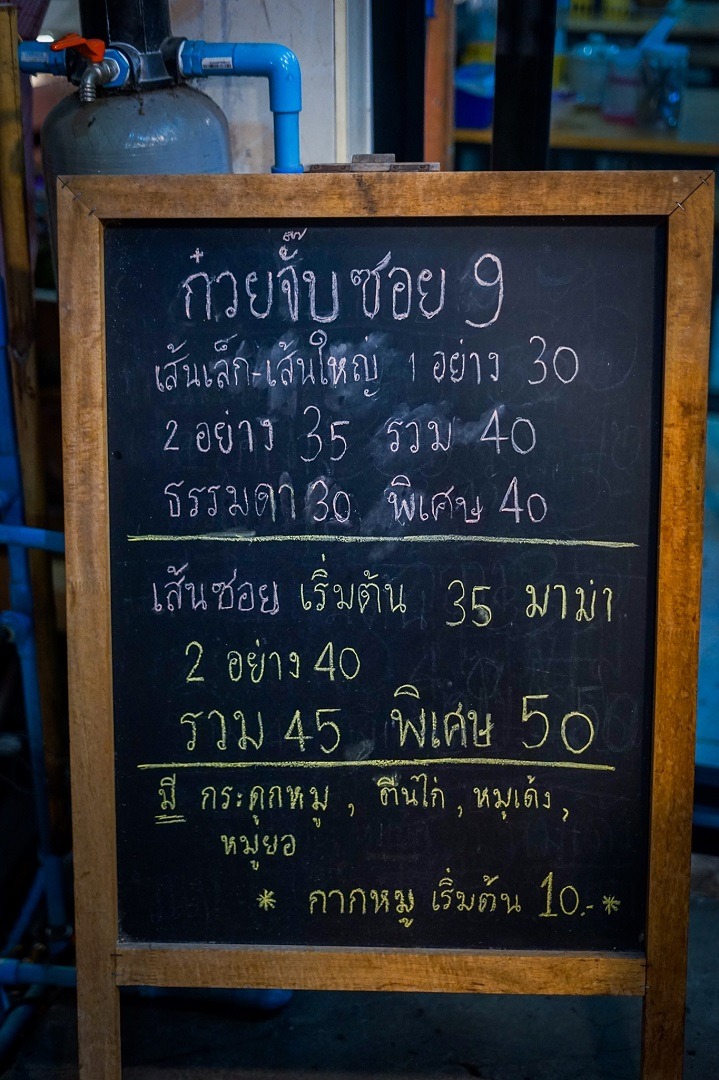 ก๋วยจั๊บ ซอย 9
เส้นเล็ก-เส้นใหญ่ 1 อย่าง 30
2 อย่าง 35 รวม 40
ธรรมดา 30 พิเศษ 40
เส้นซอย เริ่มต้น 35 มาม่า
2 อย่าง 40
รวม 45 พิเศษ 50
มี กระดูกหมู , ตีนไก่ , หมูเด้ง ,
หมูยอ
* กากหมู เริ่มต้น 10.- *